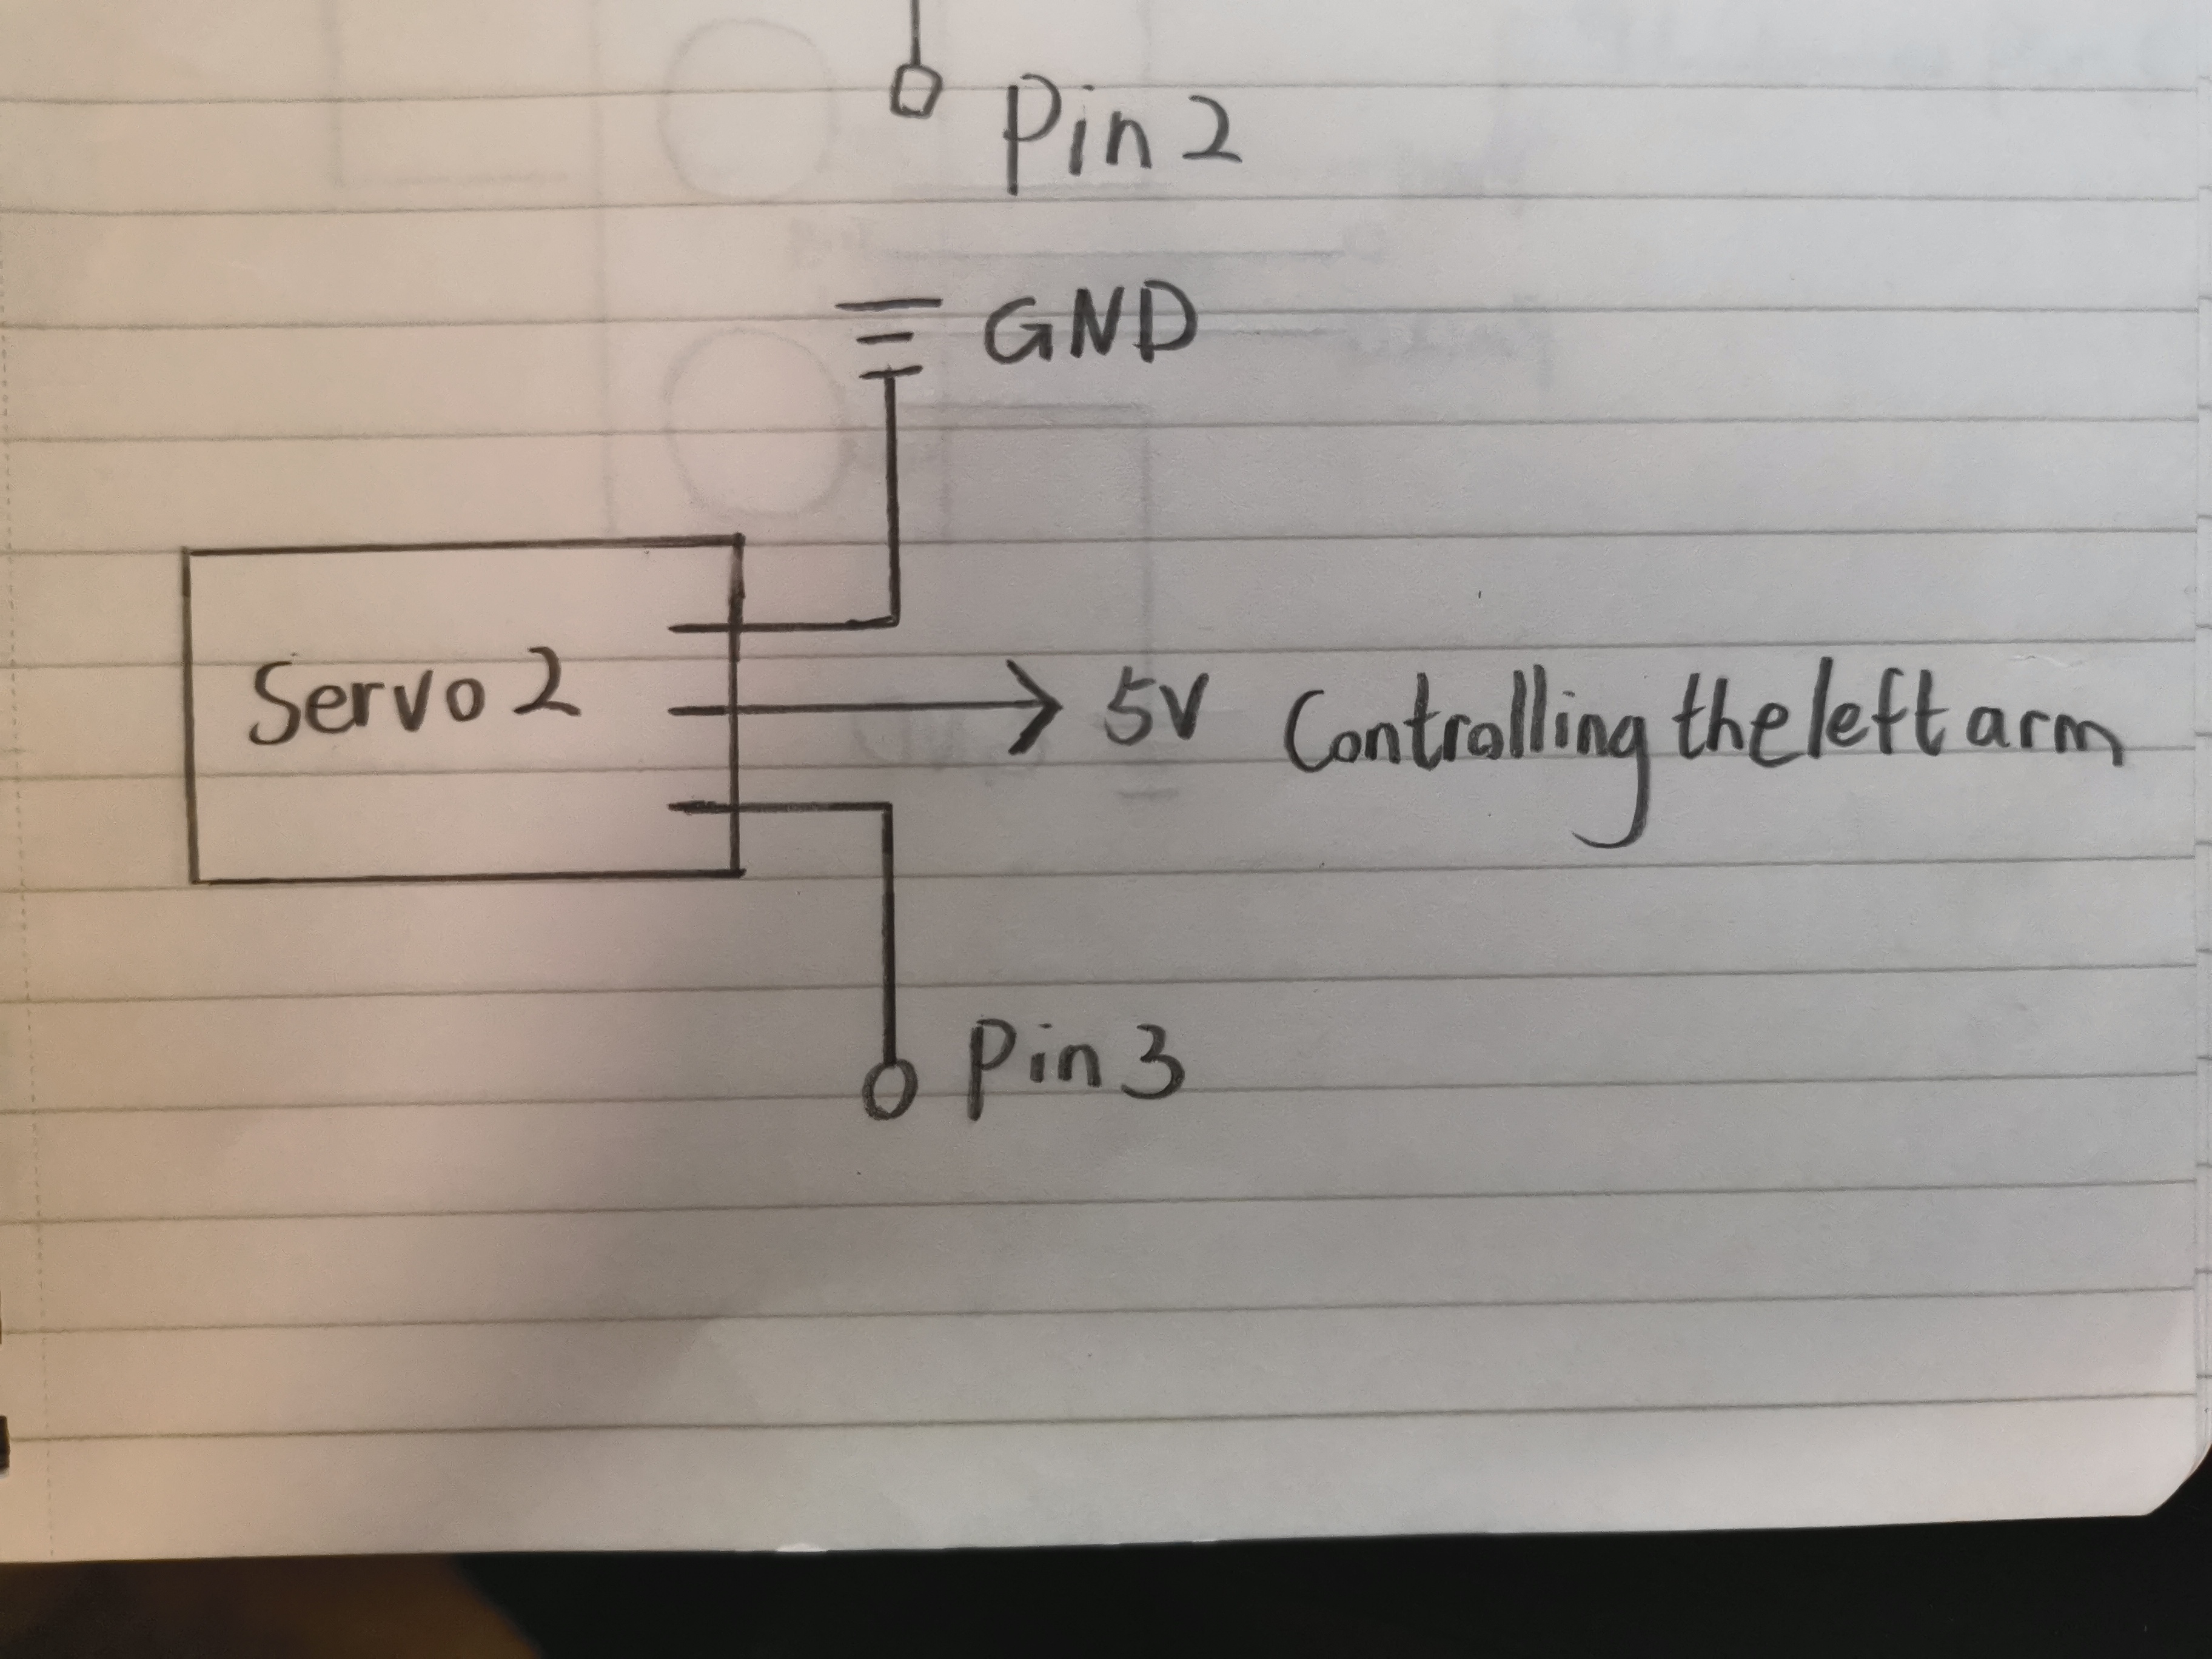 Pin 2
GND
Servo 2
5V Controlling the left arm
Pin 3